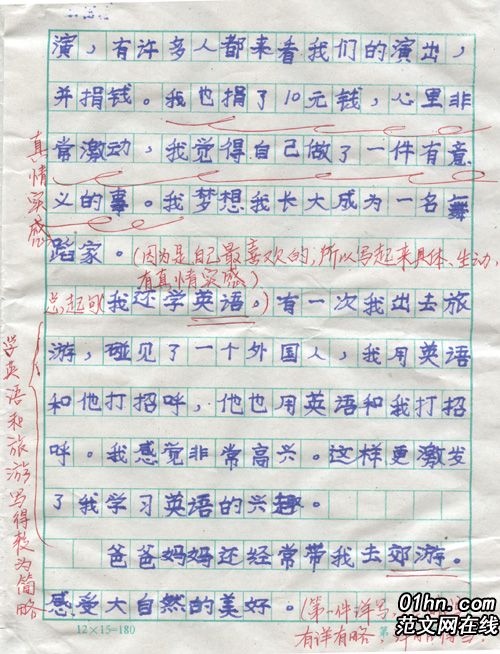 演，有许多人都来看我们的演出，
并捐钱。我也捐了10元钱，心里非
常激动，我觉得自己做了一件有意
义的事。我梦想我长大成为一名舞
蹈家。(因为是自己最喜欢的，所以写起来具体、生动，
有真情实感)
总起句(我还学英语。)有一次我出去旅
游，碰见了一个外国人，我用英语
和他打招呼，他也用英语和我打招
呼。我感觉非常高兴。这样更激发
了我学习英语的兴趣。
爸爸妈妈还经常带我去郊游。
感受大自然的美好。(第一件详写
有详有略，
真情实感
学英语和旅游写得较为简略
12×15=180
第
01hn.com
范文网在线